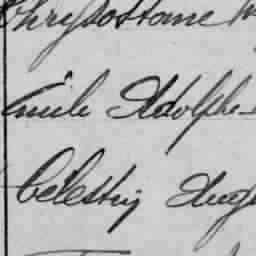 Chrysostome
Emile Adolphe
Célestin